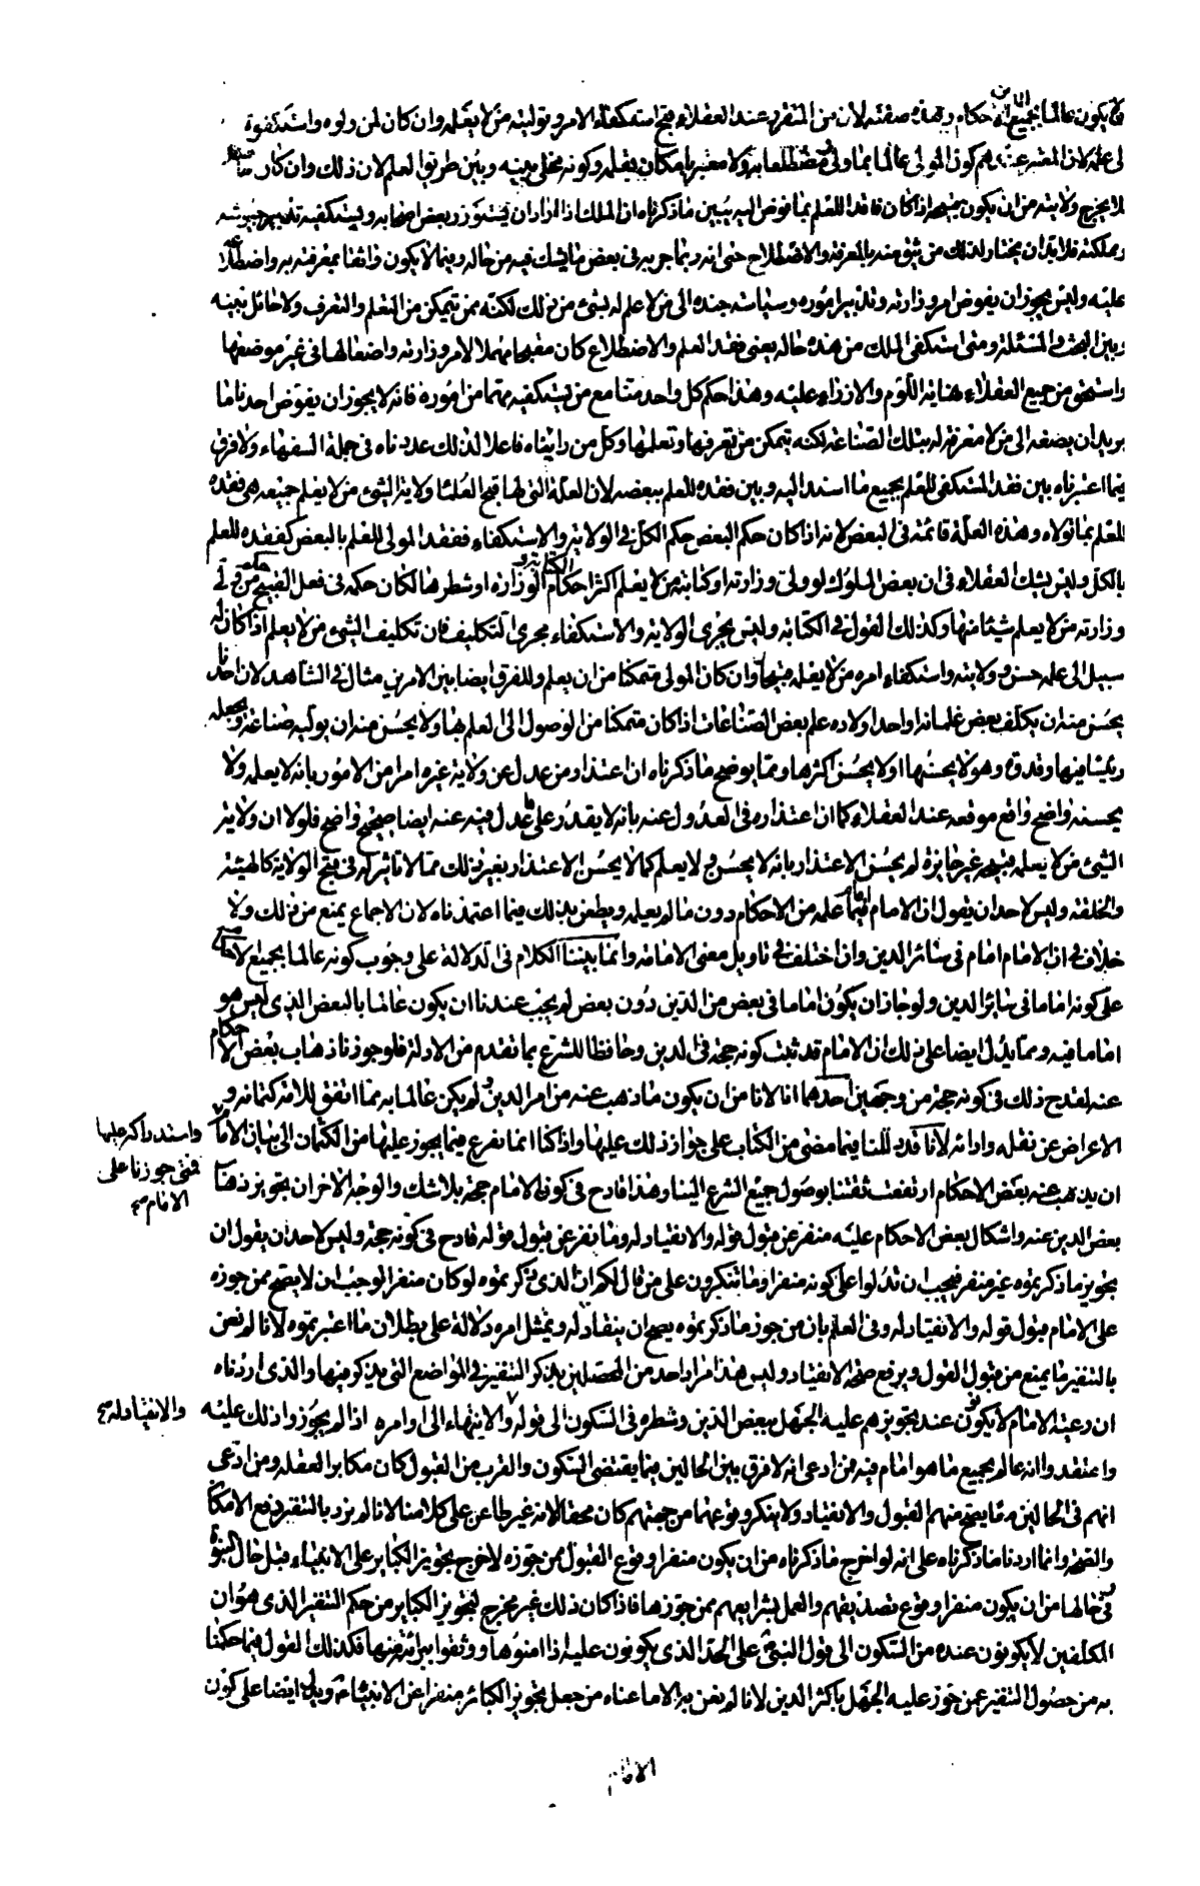 فلا يكون عالما بجميع الاحكام وهذه صفته لان من المتقرر عند العقلاء قبح استكفاء الامر وتوليته من لا يعلمه وان كان لمن ولوه واستكفوه
لى علمه لان المعتبر عندهم كون المولى عالما بما ولى ومضطلعا به ولا معتبر بامكان تعلمه وكونه مخلى بينه وبين طريق العلم لان ذلك وان كان
لا يخرج ولايته من ان يكون قبيحة اذا كان فاقدا للعلم بما فوض اليه يبين ما ذكرناه ان الملك اذا اراد ان يستوزر بعض اصحابه ويستكفيه تدبير جيوشه
ومملكته فلا بد ان يختار لذلك من يثق منه بالمعرفة والاضطلاع حتى انه ربما جربه فى بعض ما يشك فيه من حاله وبما لا يكون واثقا بمعرفته به واضطلاعه
عليه وليس يجوز ان يفوض امر وزارته وتدبير اموره وسياسة جنده الى من لا علم له بشئ من ذلك لكنه ممن يتمكن من التعلم والتعرف ولا حائل بينه
وبين البحث والمسئلة ومتى استكفى الملك من هذه حاله يعنى فقد العلم والاضطلاع كان مقبحا مهملا لامر وزارته واضعا لها فى غير موضعها
واستحق من جميع العقلاء نهاية اللوم والازراء عليه وهذا حكم كل واحد منا مع من يستكفيه مهما من اموره فانه لا يجوز ان يفوض احدنا ما
يريد ان يصنعه الى من لا معرفة له بتلك الصناعة لكنه يتمكن من تعرفها وتعلمها وكل من رايناه فاعلا لذلك عددناه فى جملة السفهاء ولا فرق
فيما اعتبرناه بين فقد المستكفى للعلم بجميع ما اسند اليه وبين فقده للعلم ببعضه لان العلة التى لها قبح العلماء ولاية الشئ من لا يعلم جميعه هى فقده
للعلم بما تولاه وهذه العلة قائمة فى البعض لانه اذا كان حكم البعض حكم الكل فى الولاية والاستكفاء ففقد المولى للعلم بالبعض كفقده للعلم
بالكل وليس يشك العقلاء فى ان بعض الملوك لو ولى وزارته او كتابته من لا يعلم اكثر احكام الكتابة والوزارة او شطرها لكان حكمه فى فعل القبيح حكم من ولى
وزارته من لا يعلم شيئا منها وكذلك القول فى الكتابة وليس يجرى الولاية والاستكفاء مجرى التكليف فان تكليف الشئ من لا يعلم اذا كان له
سبيل الى علمه حسن وولايته واستكفاء امره من لا يعلمه قبيحا وان كان المولى متمكنا من ان يعلم وللفرق ايضا بين الامرين مثال فى الشاهد لان احدنا
يحسن منه ان يكلف بعض غلمانه او احد اولاده علم بعض الصناعات اذا كان متمكنا من الوصول الى العلم بها ولا يحسن منه ان يوليه صناعة ويجعله
رئيسا فيها وقدوة وهو لا يحسنها او لا يحسن اكثرها ومما يوضح ما ذكرناه ان اعتذار من عدل عن ولاية غيره امرا من الامور بانه لا يعلمه ولا
يحسنه واضح واقع موقعه عند العقلاء كما ان اعتذاره فى العدول عنه بانه لا يقدر على ما عدل فيه عنه ايضا صحيح واضح فلولا ان ولاية
الشئ من لا يعلمه قبيحة غير جايزة لم يحسن الاعتذار بانه لا يحسن ولا يعلم كما لا يحسن الاعتذار بغير ذلك مما لا تاثير له فى قبح الولاية كالهيئة
والخلقة وليس لاحد ان يقول ان الامام امام فيما علمه من الاحكام دون ما لم يعلمه ويطعن بذلك فيما اعتمدناه لان الاجماع يمنع من ذلك ولا
خلاف فى ان الامام امام فى سائر الدين وان اختلف فى تاويل معنى الامامة وانما بنينا الكلام فى الدلالة على وجوب كونه عالما بجميع الاحكام
على كونه اماما فى سائر الدين ولو جاز ان يكون اماما فى بعض من الدين دون بعض لم يجب عندنا ان يكون عالما بالبعض الذى ليس هو
اماما فيه ومما يدل ايضا على ذلك ان الامام قد ثبت كونه حجة فى الدين وحافظا للشرع بما تقدم من الادلة فلو جوزنا ذهاب بعض الاحكام
عنه لقدح ذلك فى كونه حجة من وجهين احدهما انا لا نامن ان يكون ما ذهب عنه من امر الدين ولم يكن عالما به مما اتفق للامة كتمانه و
الاعراض عن نقله وادائه لانا قد دللنا فيما مضى من الكتاب على جواز ذلك عليها واذا كنا انما نفزع فيما يجوز عليها من الكتمان الى بيان الامام واستدراكه عليها
فمتى جوزنا على
الامام صح
ان يذهب عنه بعض الاحكام ارتفعت ثقتنا بوصول جميع الشرع الينا وهذا قادح فى كون الامام حجة بلا شك والوجه الاخر ان تجويز ذهاب
بعض الدين عنه واشكال بعض الاحكام عليه منفر عن قبول قوله والانقياد له وما نفر عن قبول قوله قادح فى كونه حجة وليس لاحد ان يقول ان
تجويز ما ذكرتموه غير منفر فيجب ان تدلوا على كونه منفرا وما تنكرون على من قال لكم ان الذى ذكرتموه لو كان منفرا لوجب ان لا يصح ممن جوزه
على الامام قبول قوله والانقياد له وفى العلم بان من جوز ما ذكرتموه يصح ان ينقاد له ويمتثل امره دلالة على بطلان ما اعتبرتموه لانا لم نعن
بالتنفير ما يمنع من قبول القول ويرفع صحة الانقياد وليس هذا مراد احد من المحصلين بذكر التنفير فى المواضع التى يذكر فيها والذى اردناه
ان رعية الامام لا يكون عند تجويزهم عليه الجهل ببعض الدين وشطره فى السكون الى قوله والانتهاء الى اوامره اذا لم يجوزوا ذلك عليه والانقياد له صح
واعتقدوا انه عالم بجميع ما هو امام فيه فمن ادعى انه لا فرق بين الحالين فيما يقتضى السكون والقرب من القبول كان مكابرا لعقله ومن ادعى
انهم فى الحالين معا يصح منهم القبول والانقياد ولا ينكر وقوعهما من جهتهم كان محقا لانه غير طاعن على كلامنا لانا لم نرد بالتنفير رفع الامكان
والصحة وانما اردنا ما ذكرناه على انه لو اخرج ما ذكرناه من ان يكون منفرا وقوع القبول ممن جوزه لاخرج تجويز الكبائر على الانبياء قبل حال النبوة
وفى حالها من ان يكون منفرا وقوع تصديقهم والعمل بشرايعهم ممن جوزها فاذا كان ذلك غير مخرج لتجويز الكباير من حكم التنفير الذى هو ان
المكلفين لا يكونون عنده من السكون الى قول النبى على الحد الذى يكونون عليه اذا امنوها ووثقوا ببرائته منها فكذلك القول فيما حكمنا
به من حصول التنفير عمن جوز عليه الجهل باكثر الدين لانا لم نعن به الا ما عناه من جعل تجويز الكبائر منفرا عن الانبياء ويدل ايضا على كون
الامام